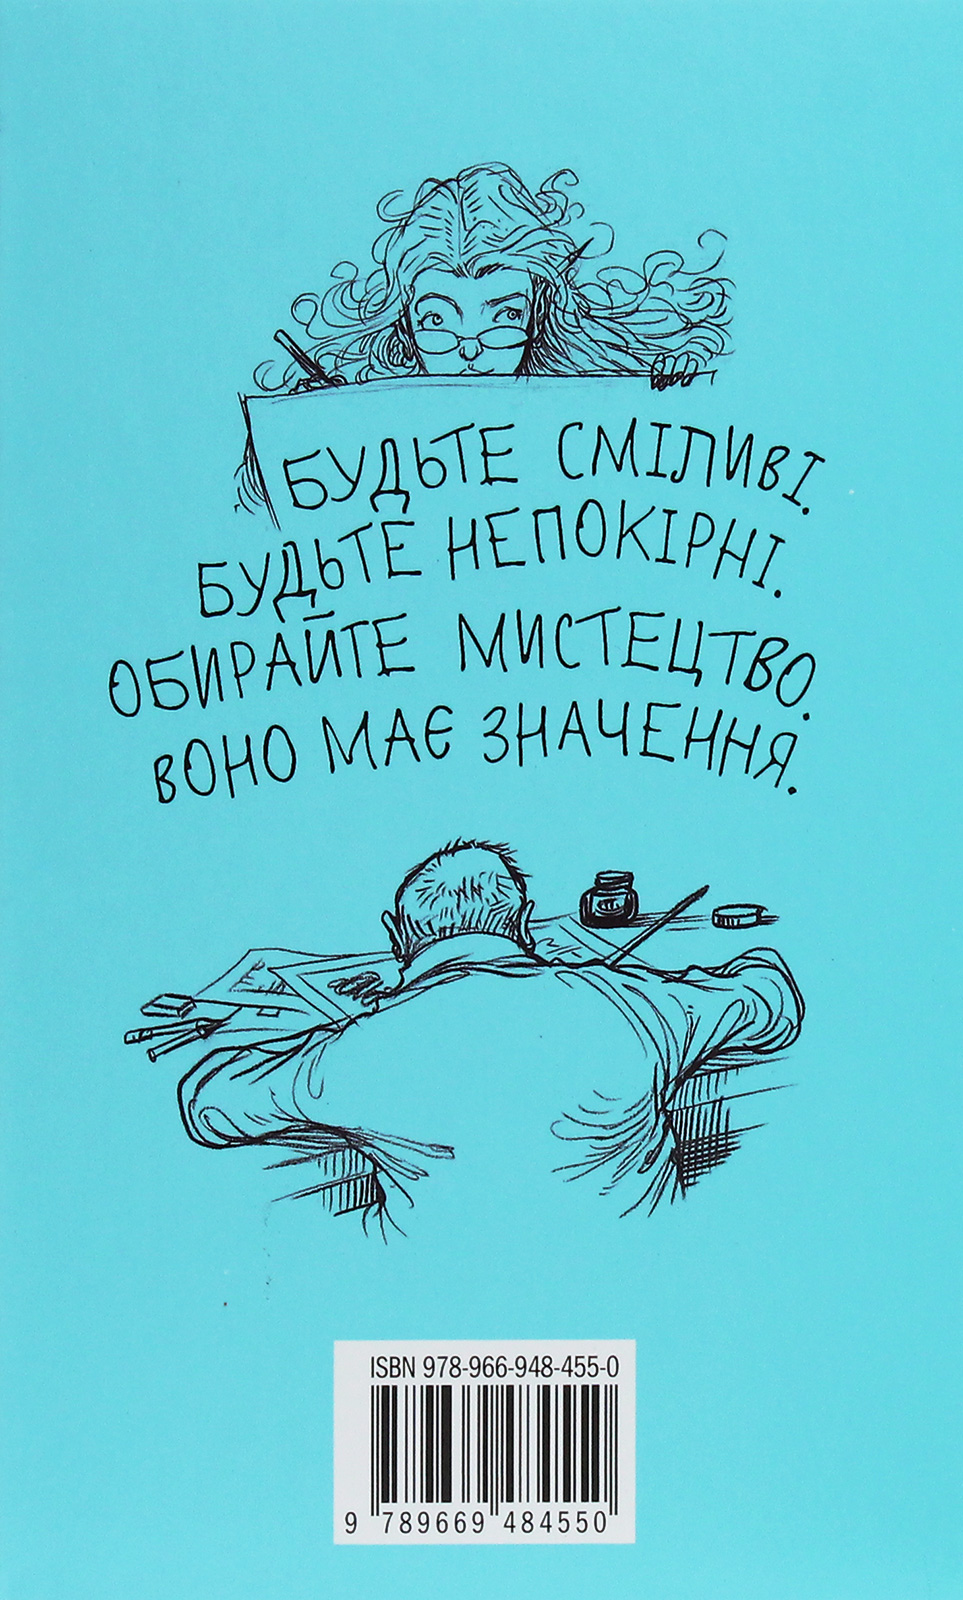 БУДЬТЕ СМІЛИВІ.
БУДЬТЕ НЕПОКІРНІ.
ОБИРАЙТЕ МИСТЕЦТВО.
ВОНО МАЄ ЗНАЧЕННЯ.
ISBN 978-966-948-455-0
9 789669 484550